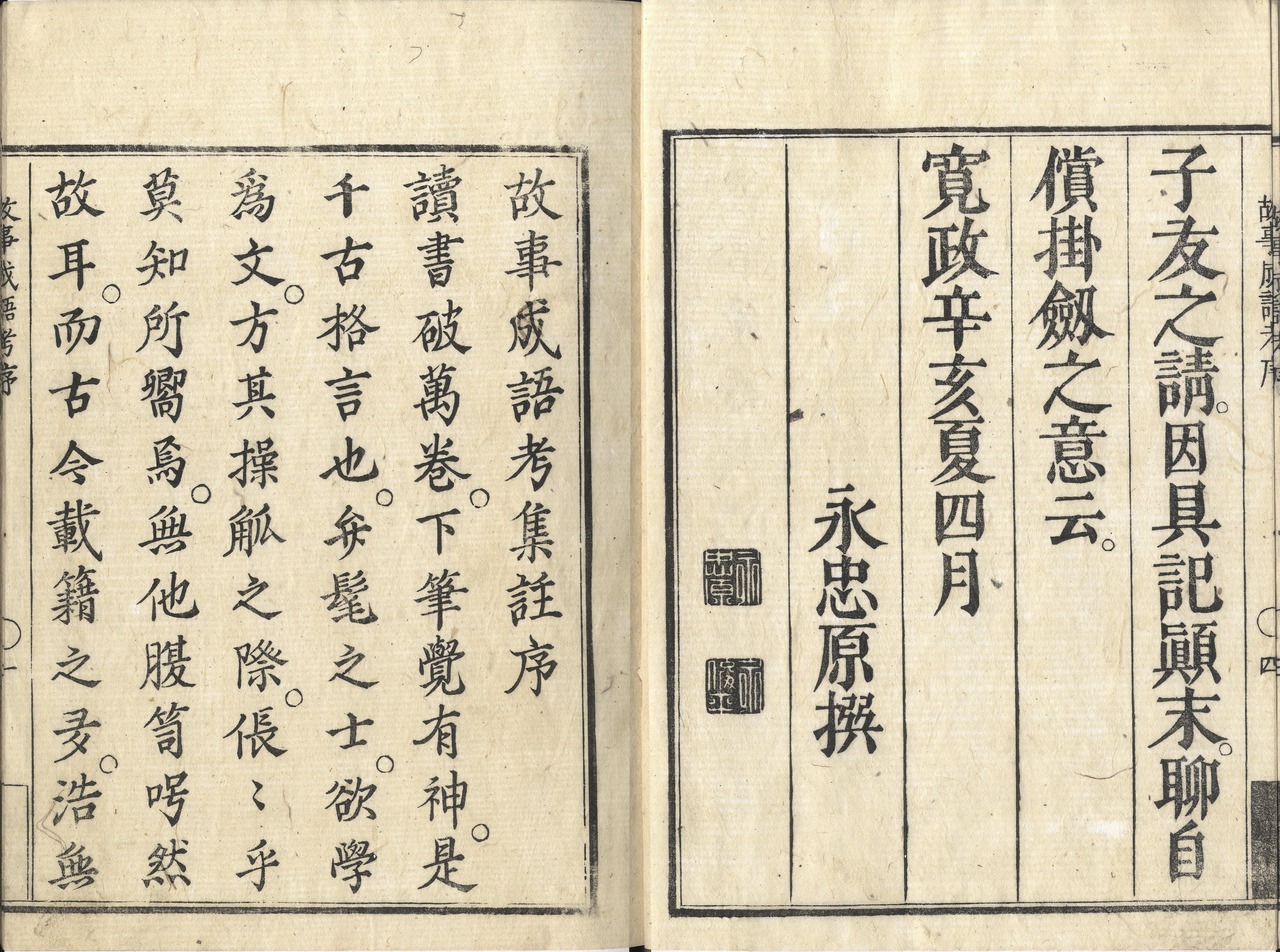 子友之請。因具記顚末。聊自
償掛劔之意云。
寛政辛亥夏四月
永忠原撰
故事成語考集註序
讀書破萬卷。下筆覺有神。是
千古格言也。弁髦之士。欲學
爲文。方其操觚之際。倀〻乎
莫知所嚮焉。無他腹笥呺然
故耳。而古今載籍之多。浩無